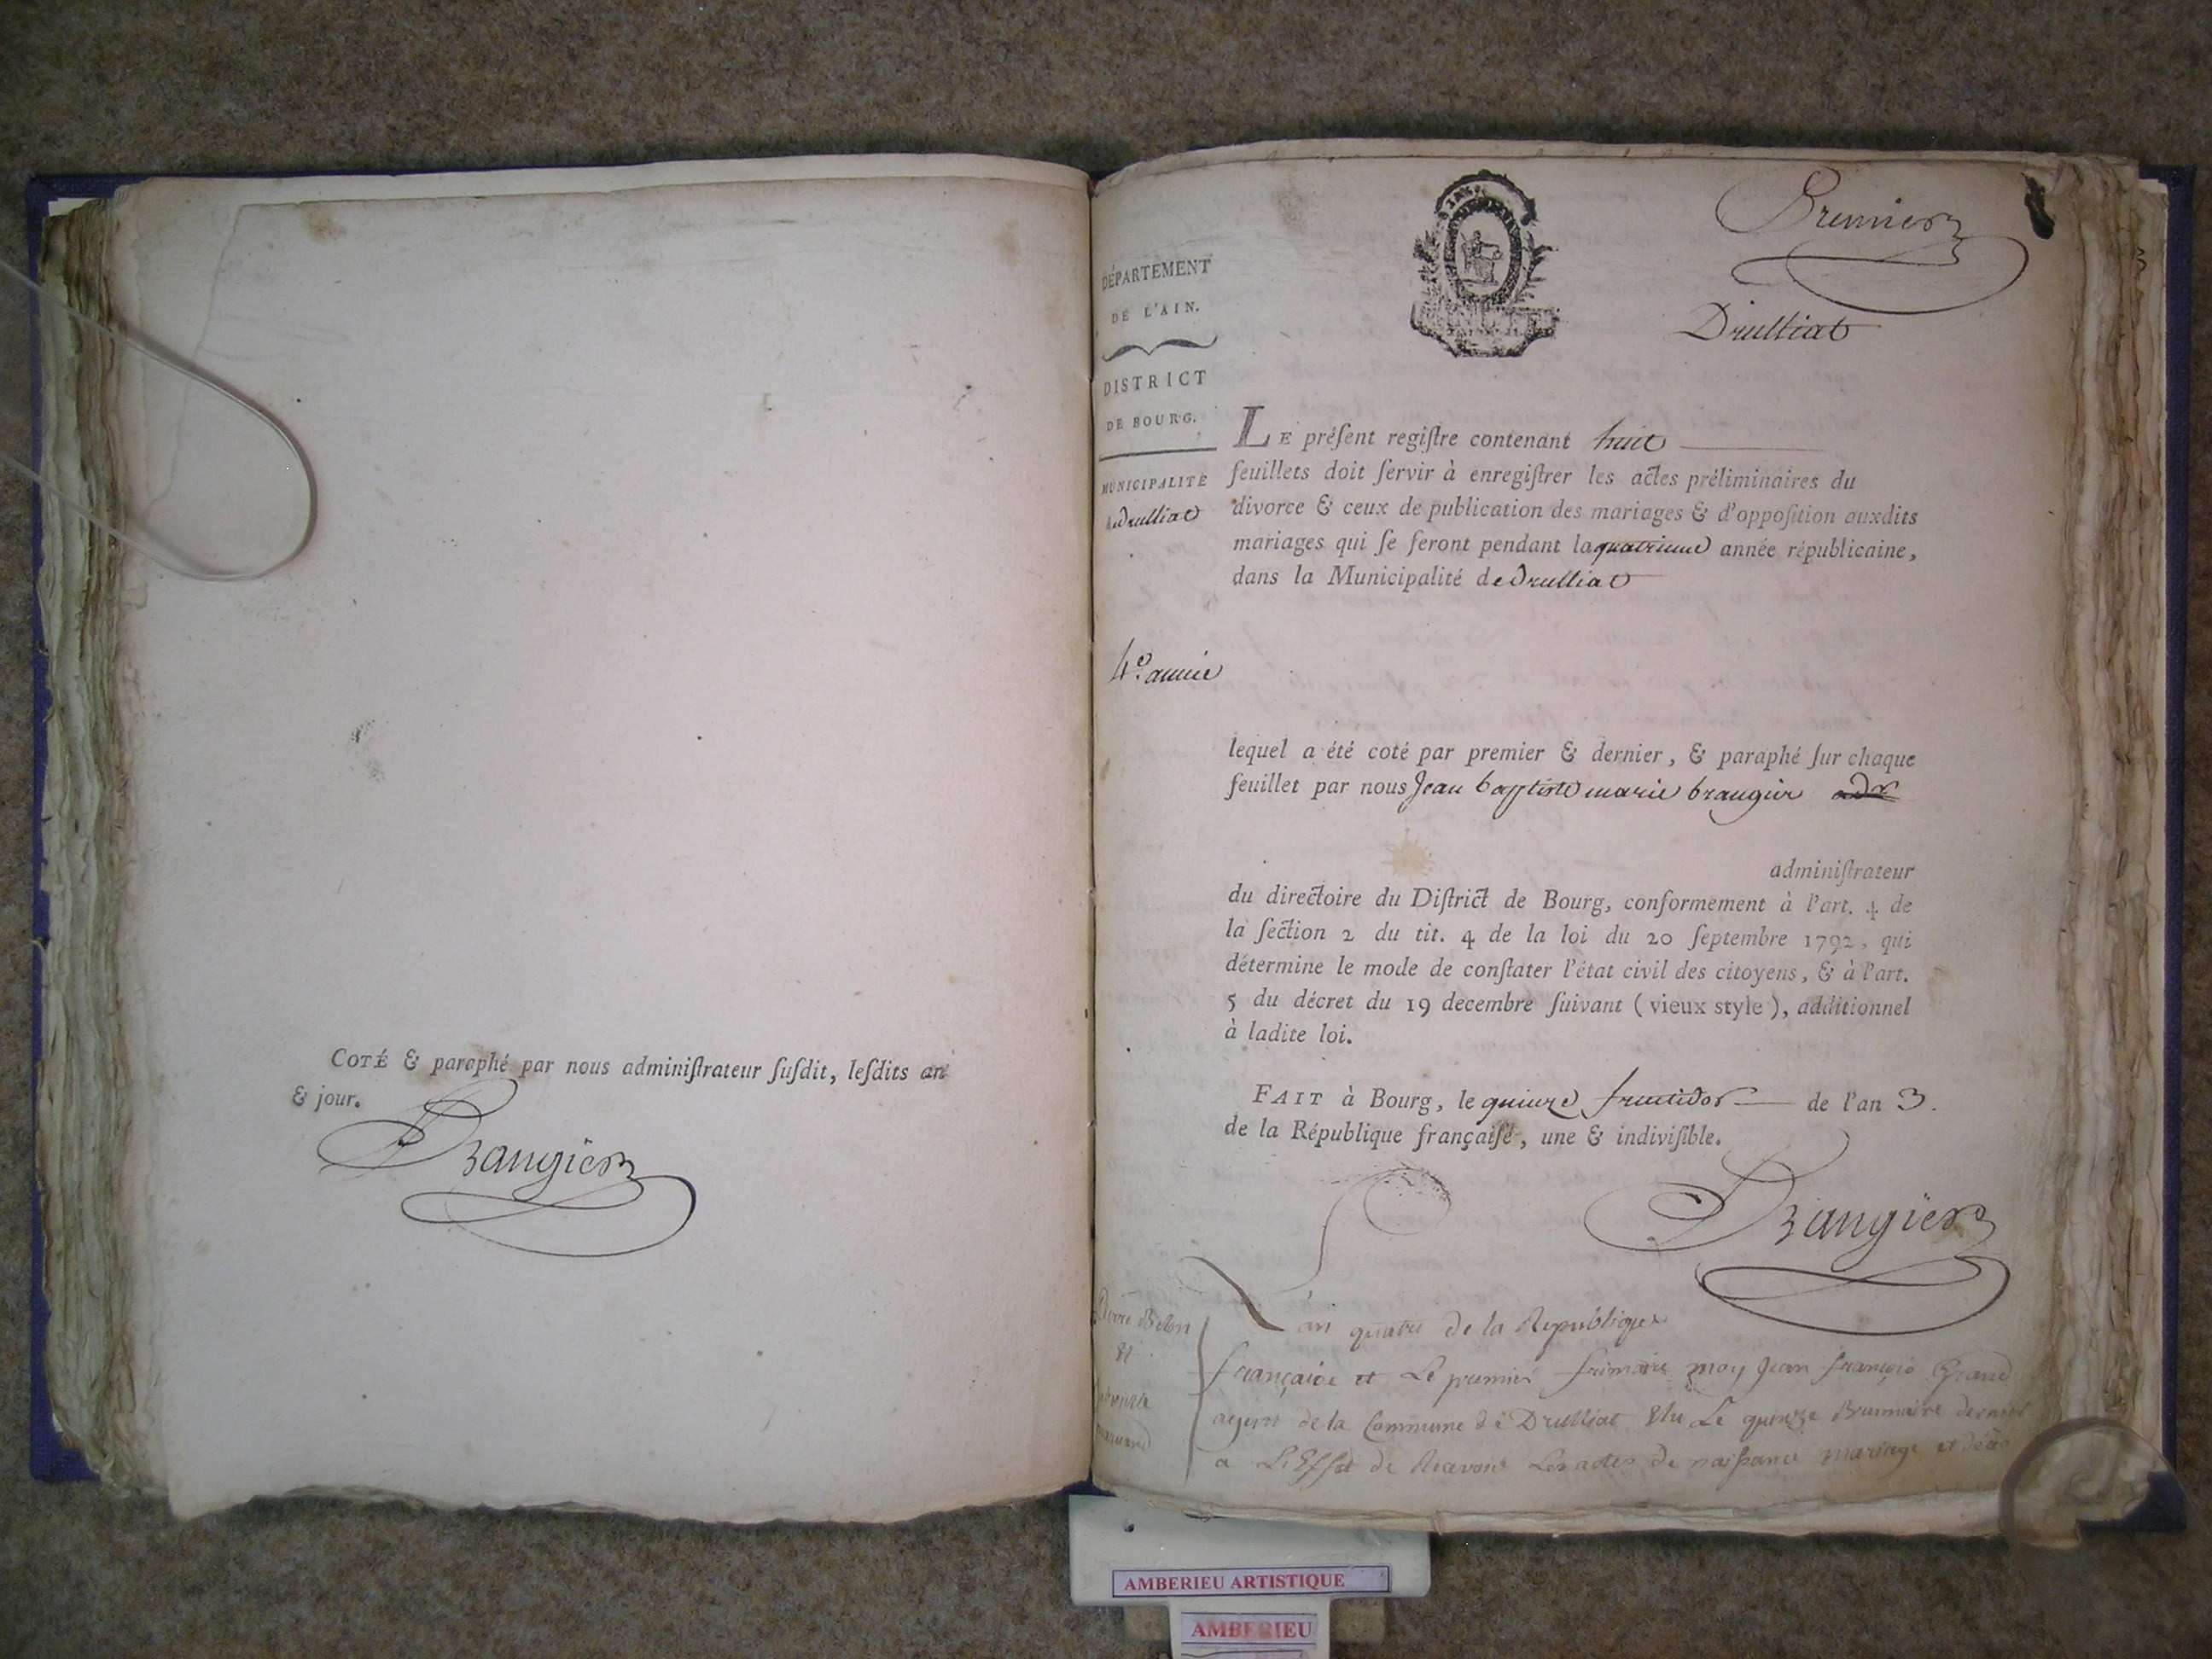 COTÉ & paraphé par nous adminiſtrateur ſuſdit, leſdits an
& jour.
Brangier
Premier
Drulliat
DÉPARTEMENT
DE L'AIN.
DISTRICT
DE BOURG.
MUNICIPALITÉ
de drulliat
LE préſent regiſtre contenant huit
feuillets doit ſervir à enregiſtrer les actes préliminaires du
divorce & ceux de publication des mariages & d'oppoſition auxdits
mariages qui ſe feront pendant la quatrieme année républicaine,
dans la Municipalité de drulliat
4e. année
lequel a été coté par premier & dernier, & paraphé ſur chaque
feuillet par nous Jean baptiste marie brangier
adminiſtrateur
du directoire du Diſtrict de Bourg, conformement à l'art. 4 de
la ſection 2 du tit. 4 de la loi du 20 ſeptembre 1792, qui
détermine le mode de conſtater l'état civil des citoyens, & à l'art.
5 du décret du 19 decembre ſuivant (vieux style), additionnel
à ladite loi.
FAIT à Bourg, le quinze fructidor de l'an 3.
de la République françaiſe, une & indiviſible.
Brangier
L'an quatre de la Republique
française et Le premier frimaire moy Jean françois Grand
agent de la Commune de Drulliat Elu Le quinze Brumaire dernier
a L'Effet de Recevoir Les actes de naissance mariage et
AMBERIEU ARTISTIQUE
AMBERIEU